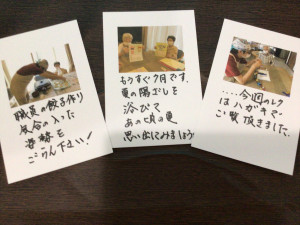 職員の餃子作り
気合の入った
姿勢を
ごらん下さい!
もうすぐ7月です。
夏の陽ざしを
浴びて
あの頃の夏
思い出してみましょう
....今回のレク
はハガキで
ご覧頂きました。